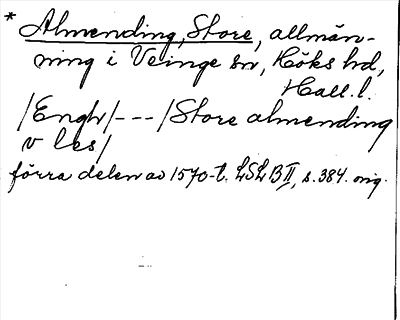 * Almending, Store, allmän-
ning i Veinge sn, Höks hd,
Hall. l.
/Engh/---/Store almending
v les/
förra delen av 1570-t. LSLB II, s. 384. orig.